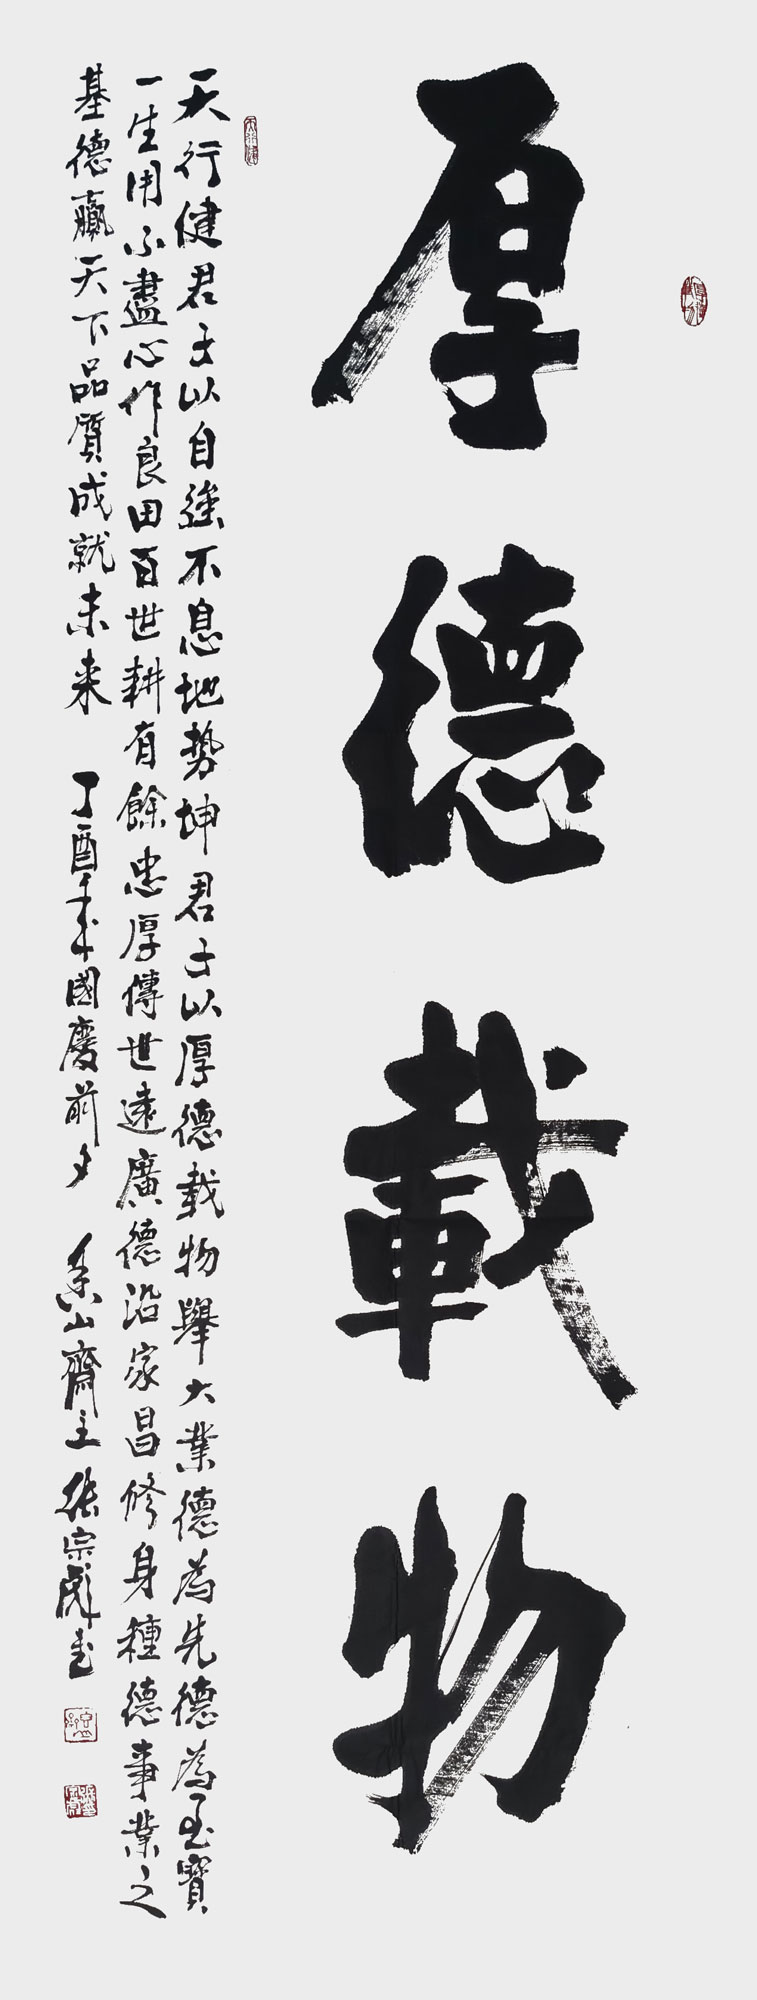 厚德載物
天行健君子以自強不息地势坤君子以厚德载物舉大業德為先德為至寶
一生用不盡心作良田百世耕有餘忠厚傳世遠廣德沿家昌修身種德事業之
基德贏天下品質成就未来 丁酉年國慶前夕 山齋主 張宗彪書